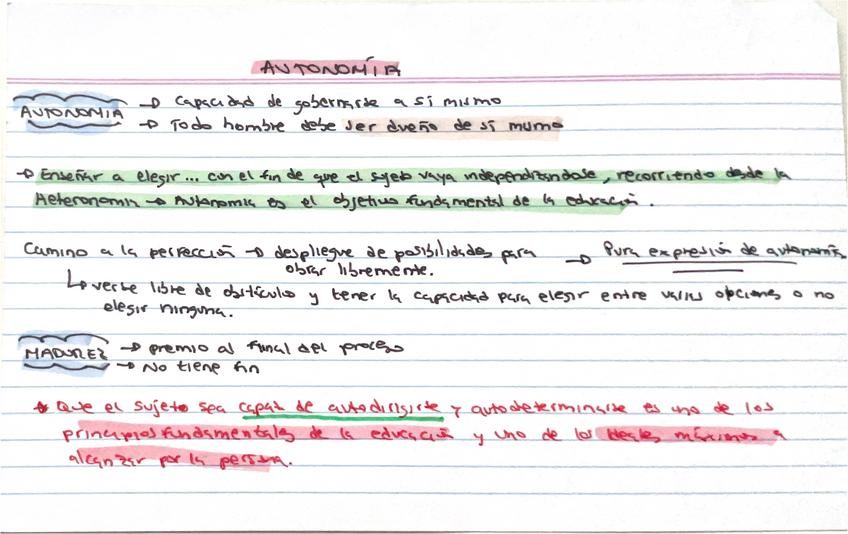 AUTONOMÍA
AUTONOMIA → Capacidad de gobernarse a sí mismo
→ Todo hombre debe ser dueño de sí mismo
→ Enseñar a elegir... con el fin de que el sujeto vaya independizandose, recorriendo desde la
Heteronomia → Autonomia es el objetivo fundamental de la educación.
Camino a la perfección → despliegue de posibilidades para → Pura expresión de autonomía
obrar libremente.
↳ verse libre de obstáculo y tener la capacidad para elegir entre varias opciones o no
elegir ninguna.
MADUREZ → premio al final del proceso
→ No tiene fin
* Que el sujeto sea capaz de autodirigirse y autodeterminarse es uno de los
principios fundamentales de la educación y uno de los ideales máximos a
alcanzar por la persona.